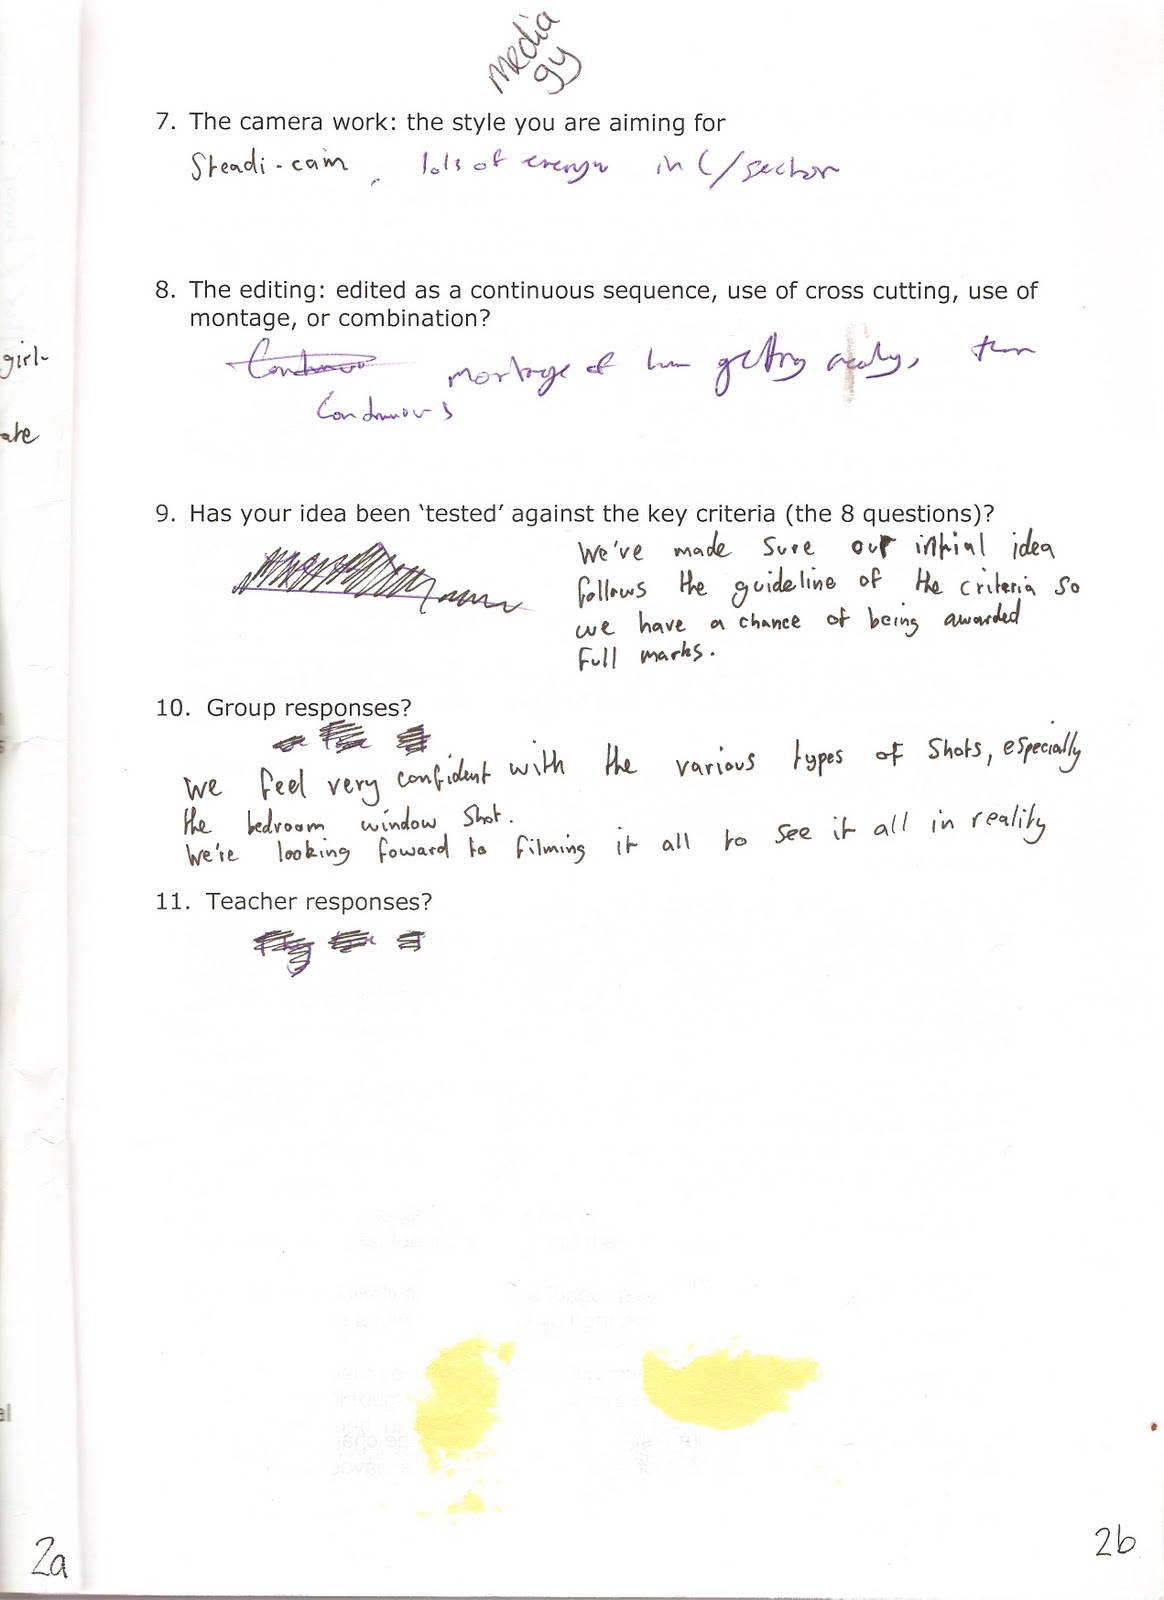 media
gy
7. The camera work: the style you are aiming for
Steadi-cam, lots of energy in C/sector
8. The editing: edited as a continuous sequence, use of cross cutting, use of
montage, or combination?
girl-
montage of him getting ready, then
Continuous
ate
9. Has your idea been 'tested' against the key criteria (the 8 questions)?
We've made sure our initial idea
follows the guideline of the criteria so
we have a chance of being awarded
full marks.
10. Group responses?
We feel very confident with the various types of shots, especially
the bedroom window shot.
We're looking foward to filming it all to see it all in reality
11. Teacher responses?
2a
2b